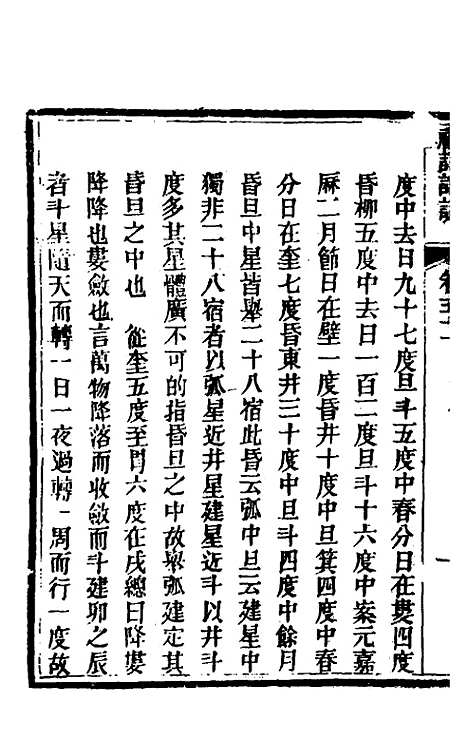 度中去日九十七度旦斗五度中春分日在婁四度
昏柳五度中去日一百二度旦斗十六度中案元嘉
厤二月節日在壁一度昏井十度中旦箕四度中春
分日在奎七度昏東井三十度中旦斗四度中餘月
昏旦中星皆舉二十八宿此昏云弧中旦云建星中
獨非二十八宿者以弧星近井星建星近斗以井斗
度多其星體廣不可的指昏旦之中故舉弧建定其
昏旦之中也　從奎五度至胃六度在戌總曰降婁
降降也婁斂也言萬物降落而收斂而斗建卯之辰
者斗星隨天而轉一日一夜過轉一周而行一度故